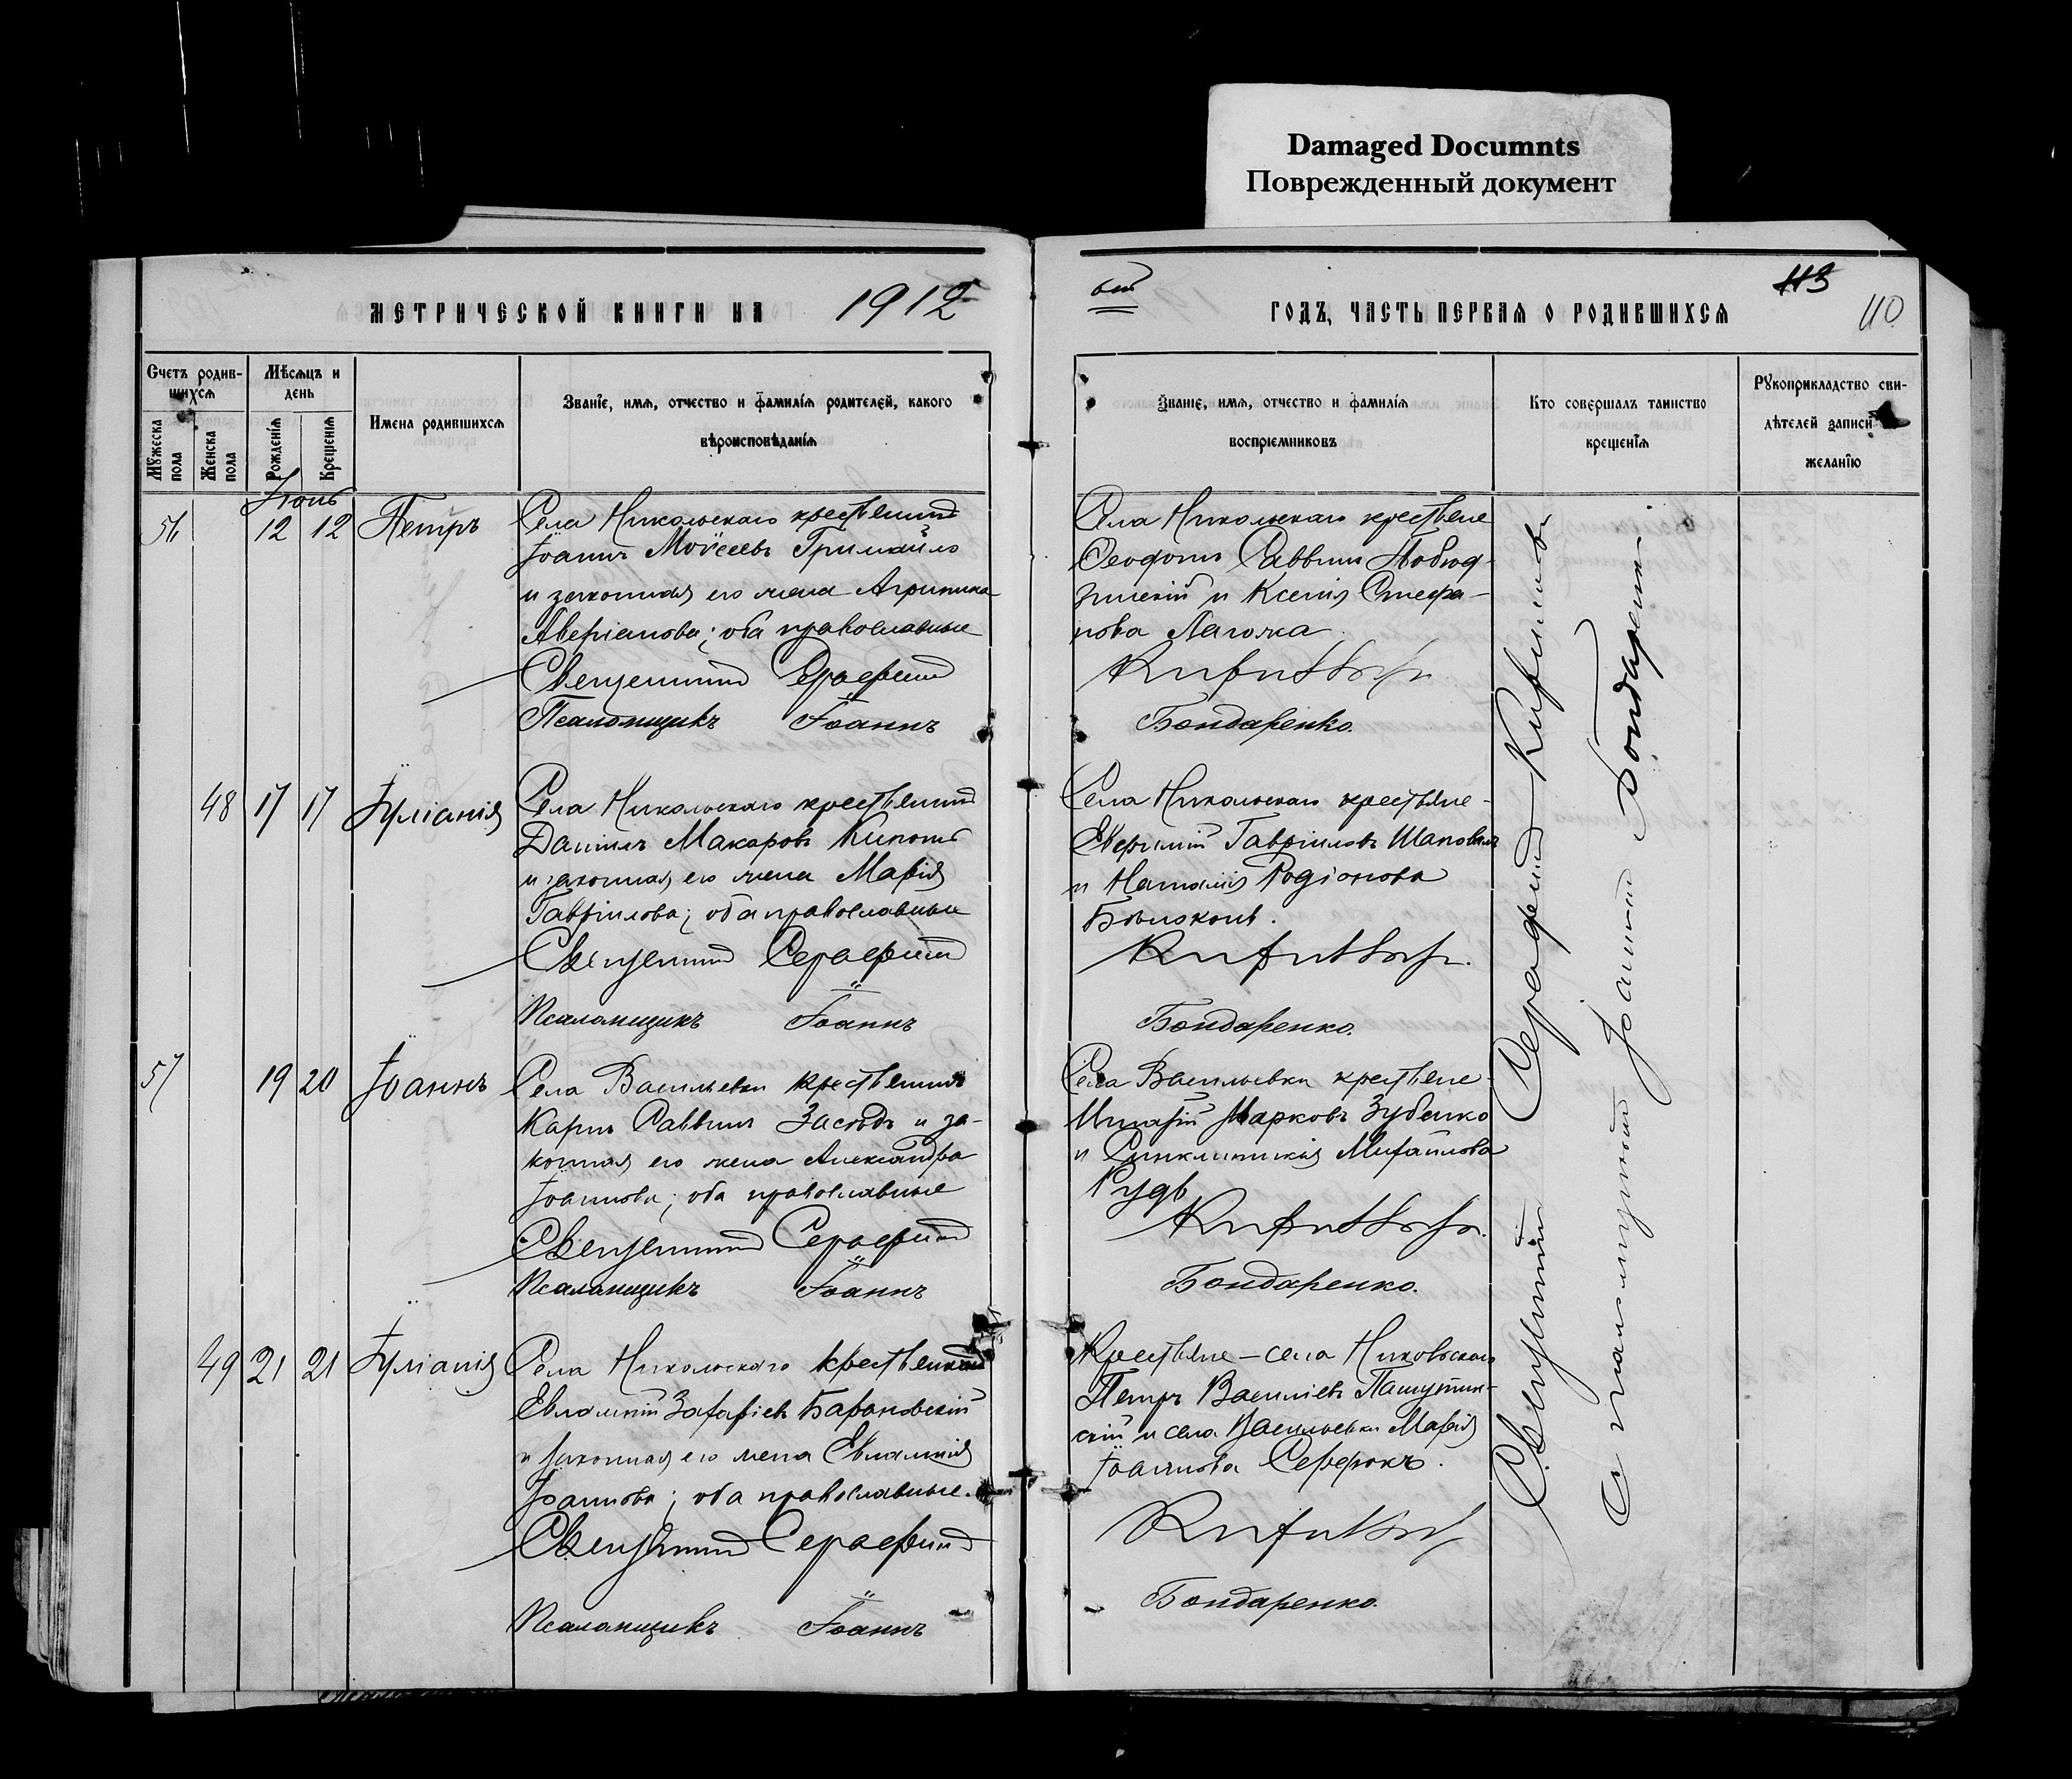 Damaged Documnts
Поврежденный документ
МЕТРИЧЕСКОЙ КНИГИ НА 1912
ГОДЪ, ЧАСТЬ ПЕРВАЯ О РОДИВШИХСЯ
113
110
Счетъ родив-
шихся
Мужеска пола
Женска пола
Мѣсяцъ и
день
Рожденія
Крещенія
Имена родившихся
Званіе, имя, отчество и фамилія родителей, какого
вѣроисповѣданія
Званіе, имя, отчество и фамилія
воспріемниковъ
Кто совершалъ таинство
крещенія
Рукоприкладство сви-
дѣтелей записи
желанію
Іюнь
56 12 12 Петръ
Села Никольскаго крестьянинъ
Іоаннъ Моѵсеевъ Гримайло
и законная его жена Агрипина
Аверіанова; оба православные
Священникъ Серафимъ
Псаломщикъ Іоаннъ
Села Никольскаго крестьяне
Ѳеодотъ Саввинъ
и Ксенія Стефа-
нова
Бондаренко.
48 17 17 Іуліанія
Села Никольскаго крестьянинъ
Даніилъ Макаровъ
и законная его жена Марія
Гавріилова; оба православные
Священникъ Серафимъ
Псаломщикъ Іоаннъ
Села Никольскаго крестьяне
Евфимій Гавріиловъ Шаповалъ
и Наталія Родіонова
Бѣлоконь.
Бондаренко.
57 19 20 Іоаннъ
Села Васильевки крестьянинъ
Карпъ Саввинъ Засядь и за-
конная его жена Александра
Іоаннова; оба православные
Священникъ Серафимъ
Псаломщикъ Іоаннъ
Села Васильевки крестьяне
Марковъ Зубенко
и Синклитикія Михайлова
Рудь
Бондаренко.
49 21 21 Іуліанія
Села Никольскаго крестьянинъ
Евлампій Захаріевъ Барановскій
и законная его жена Евлампія
Іоаннова; оба православные.
Священникъ Серафимъ
Псаломщикъ Іоаннъ
Крестьяне – села Никольскаго
Петръ Василіевъ Пашутин-
скій и села Васильевки Марія
Іоаннова
Бондаренко.
Священникъ Серафимъ
Съ псаломщикомъ Іоанномъ Бондаренко